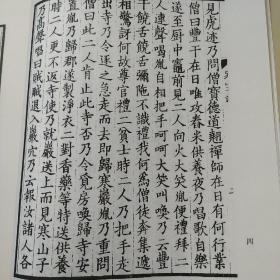 見虎迹乃問僧寶德道翹禪師在日有何行業
僧曰豐干在日唯攻舂米供養夜乃唱歌自樂
遂至廚中竈前見二人向火大笑胤便禮拜二
人連聲喝胤自相把手呵呵大笑叫喚乃云豐
干饒舌饒舌彌陁不識禮我何爲僧徒奔集遞
相驚訝何故尊官禮二貧士時二人乃把手走
出寺乃令逐之急走而去即歸寒巖胤乃重問
僧曰此二人肯止此寺否乃令覓房喚歸寺安
置胤乃歸郡遂製淨衣二對香藥等特送供養
時二人更不返寺使乃就巖送上而見寒山子
乃高聲唱曰賊賊退入巖穴乃云報汝諸人各
四